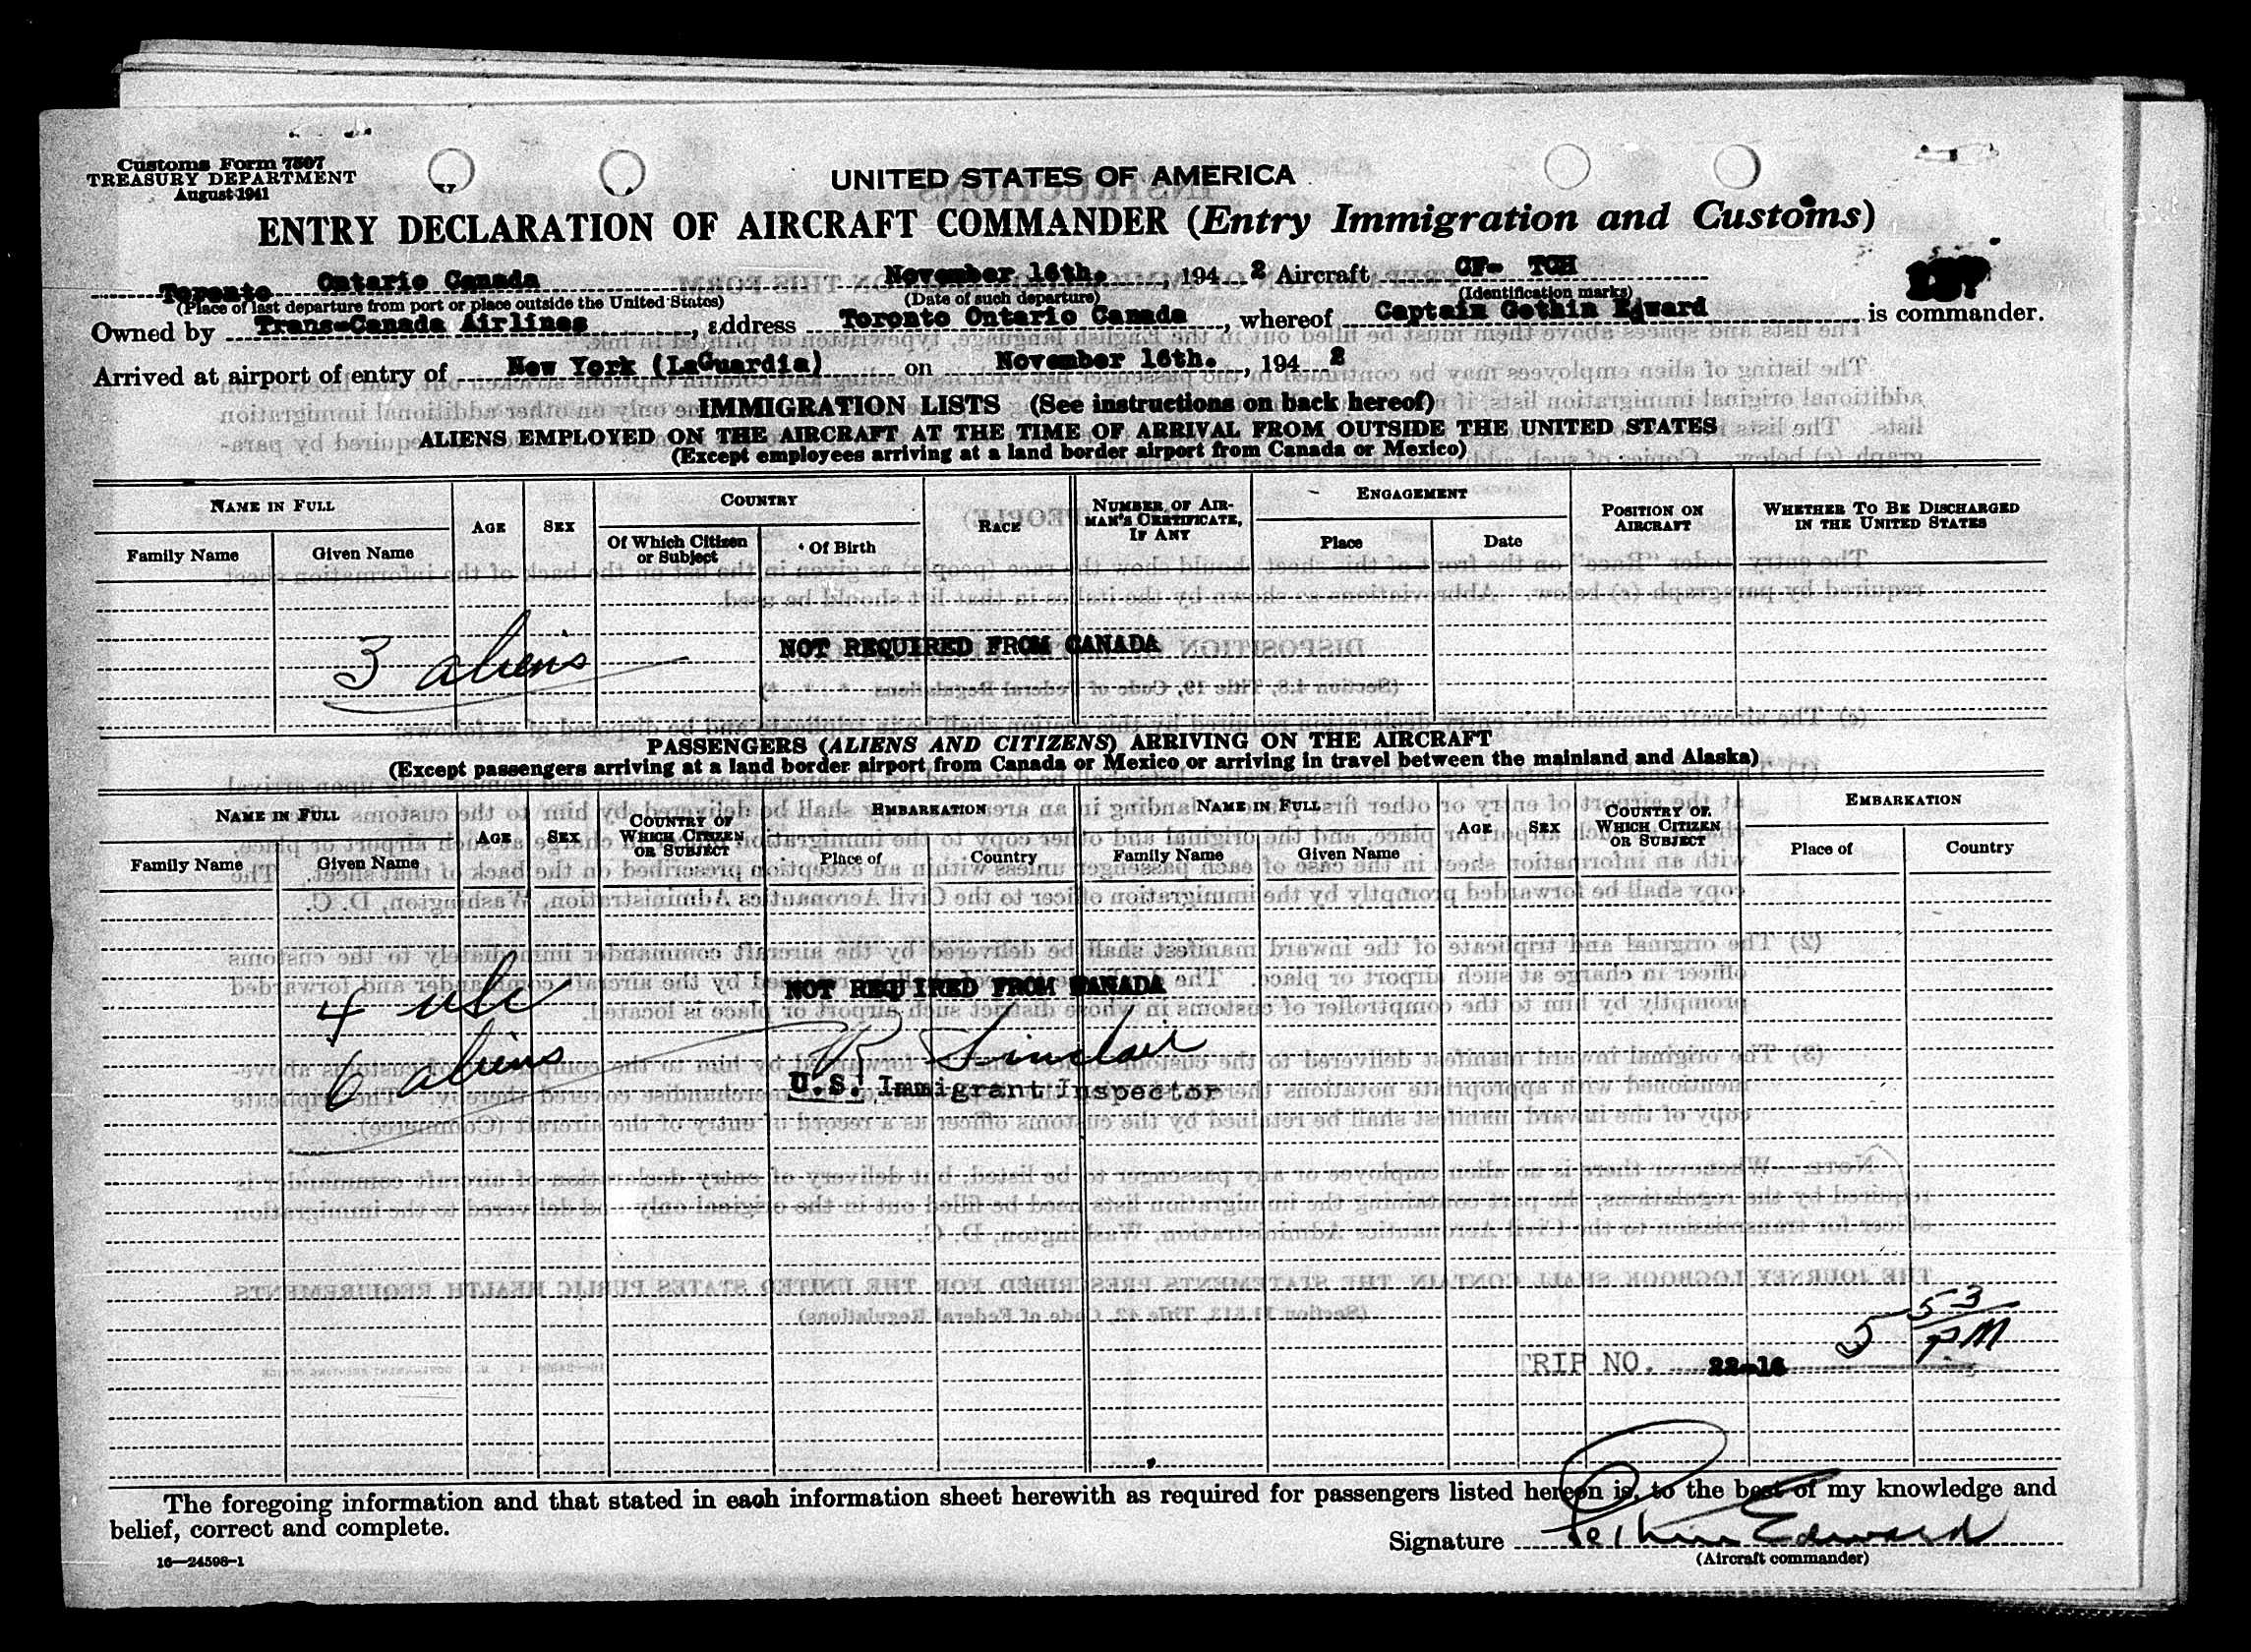 Customs Form 7507
TREASURY DEPARTMENT
August 1941
UNITED STATES OF AMERICA
ENTRY DECLARATION OF AIRCRAFT COMMANDER (Entry Immigration and Customs)
Toronto Ontario Canada November 16th. , 194 2 Aircraft CF- TCH
(Place of last departure from port or place outside the United States) (Date of such departure) (Identification marks)
Owned by Trans-Canada Airlines , address Toronto Ontario Canada , whereof Captain Gethin Edward is commander.
Arrived at airport of entry of New York (LaGuardia) on November 16th. , 194 2
IMMIGRATION LISTS (See instructions on back hereof)
ALIENS EMPLOYED ON THE AIRCRAFT AT THE TIME OF ARRIVAL FROM OUTSIDE THE UNITED STATES
(Except employees arriving at a land border airport from Canada or Mexico)
NAME IN FULL AGE SEX COUNTRY RACE NUMBER OF AIRMAN'S CERTIFICATE, IF ANY ENGAGEMENT POSITION ON AIRCRAFT WHETHER TO BE DISCHARGED IN THE UNITED STATES
Family Name Given Name Of Which Citizen or Subject Of Birth Place Date
3 aliens NOT REQUIRED FROM CANADA
PASSENGERS (ALIENS AND CITIZENS) ARRIVING ON THE AIRCRAFT
(Except passengers arriving at a land border airport from Canada or Mexico or arriving in travel between the mainland and Alaska)
NAME IN FULL AGE SEX COUNTRY OF WHICH CITIZEN OR SUBJECT EMBARKATION NAME IN FULL AGE SEX COUNTRY OF WHICH CITIZEN OR SUBJECT EMBARKATION
Family Name Given Name Place of Country Family Name Given Name Place of Country
4 usc NOT REQUIRED FROM CANADA
6 aliens R Sinclair
U.S. Immigrant Inspector
5 53 PM
TRIP NO. 22-16
The foregoing information and that stated in each information sheet herewith as required for passengers listed hereon is, to the best of my knowledge and
belief, correct and complete.
Signature Gethin Edward
(Aircraft commander)
16—24598-1